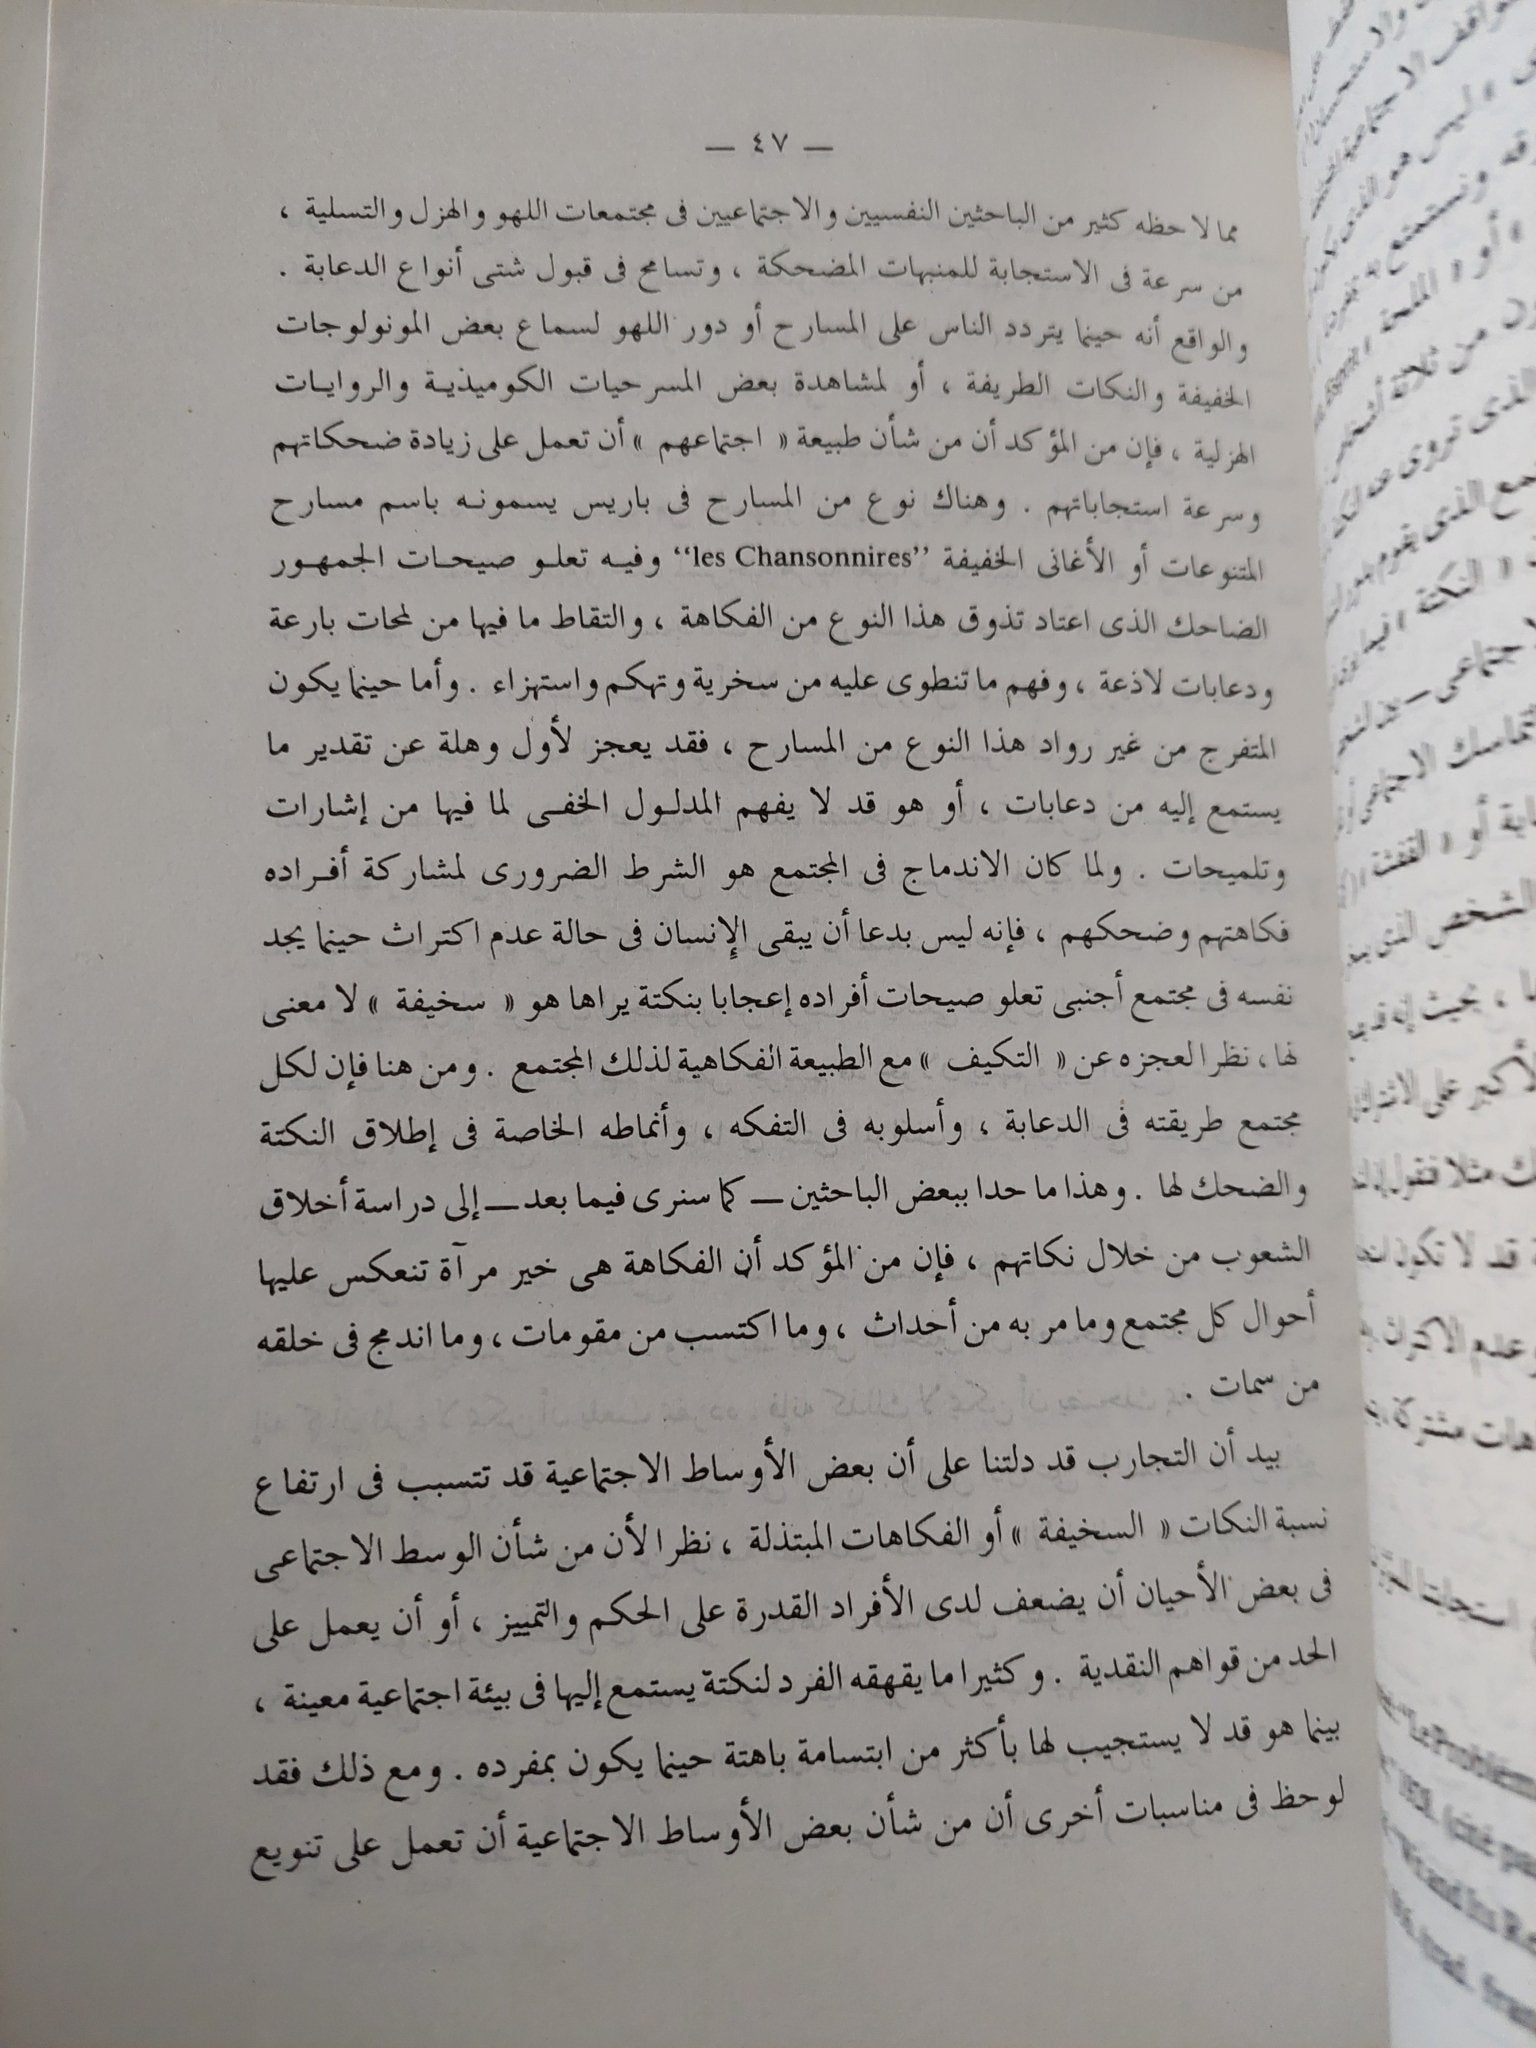 — ٤٧ —
مما لاحظه كثير من الباحثين النفسيين والاجتماعيين فى مجتمعات اللهو والهزل والتسلية ،
من سرعة فى الاستجابة للمنبهات المضحكة ، وتسامح فى قبول شتى أنواع الدعابة .
والواقع أنه حينما يتردد الناس على المسارح أو دور اللهو لسماع بعض المونولوجات
الخفيفة والنكات الطريفة ، أو لمشاهدة بعض المسرحيات الكوميذية والروايات
الهزلية ، فإن من المؤكد أن من شأن طبيعة « اجتماعهم » أن تعمل على زيادة ضحكاتهم
وسرعة استجاباتهم . وهناك نوع من المسارح فى باريس يسمونه باسم مسارح
المتنوعات أو الأغانى الخفيفة “les Chansonnires” وفيه تعلو صيحات الجمهور
الضاحك الذى اعتاد تذوق هذا النوع من الفكاهة ، والتقاط ما فيها من لمحات بارعة
ودعابات لاذعة ، وفهم ما تنطوى عليه من سخرية وتهكم واستهزاء . وأما حينما يكون
المتفرج من غير رواد هذا النوع من المسارح ، فقد يعجز لأول وهلة عن تقدير ما
يستمع إليه من دعابات ، أو هو قد لا يفهم المدلول الخفى لما فيها من إشارات
وتلميحات . ولما كان الاندماج فى المجتمع هو الشرط الضرورى لمشاركة أفراده
فكاهتهم وضحكهم ، فإنه ليس بدعا أن يبقى الإنسان فى حالة عدم اكتراث حينما يجد
نفسه فى مجتمع أجنبى تعلو صيحات أفراده إعجابا بنكتة يراها هو « سخيفة » لا معنى
لها ، نظرا لعجزه عن « التكيف » مع الطبيعة الفكاهية لذلك المجتمع . ومن هنا فإن لكل
مجتمع طريقته فى الدعابة ، وأسلوبه فى التفكه ، وأنماطه الخاصة فى إطلاق النكتة
والضحك لها . وهذا ما حدا ببعض الباحثين — كما سنرى فيما بعد — إلى دراسة أخلاق
الشعوب من خلال نكاتهم ، فإن من المؤكد أن الفكاهة هى خير مرآة تنعكس عليها
أحوال كل مجتمع وما مر به من أحداث ، وما اكتسب من مقومات ، وما اندمج فى خلقه
من سمات .
بيد أن التجارب قد دلتنا على أن بعض الأوساط الاجتماعية قد تتسبب فى ارتفاع
نسبة النكات « السخيفة » أو الفكاهات المبتذلة ، نظرا لأن من شأن الوسط الاجتماعى
فى بعض الأحيان أن يضعف لدى الأفراد القدرة على الحكم والتمييز ، أو أن يعمل على
الحد من قواهم النقدية . وكثيرا ما يقهقه الفرد لنكتة يستمع إليها فى بيئة اجتماعية معينة ،
بينما هو قد لا يستجيب لها بأكثر من ابتسامة باهتة حينما يكون بمفرده . ومع ذلك فقد
لوحظ فى مناسبات أخرى أن من شأن بعض الأوساط الاجتماعية أن تعمل على تنويع